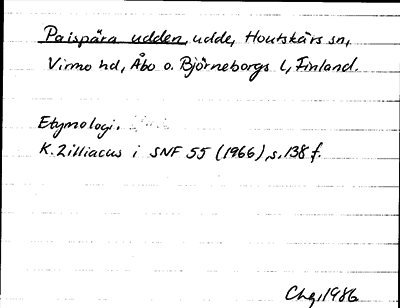 Paispära udden, udde, Houtskärs sn,
Virmo hd, Åbo o. Björneborgs l, Finland.
Etymologi.
K. Zilliacus i SNF 55 (1966), s. 138 f.
Chg, 1986